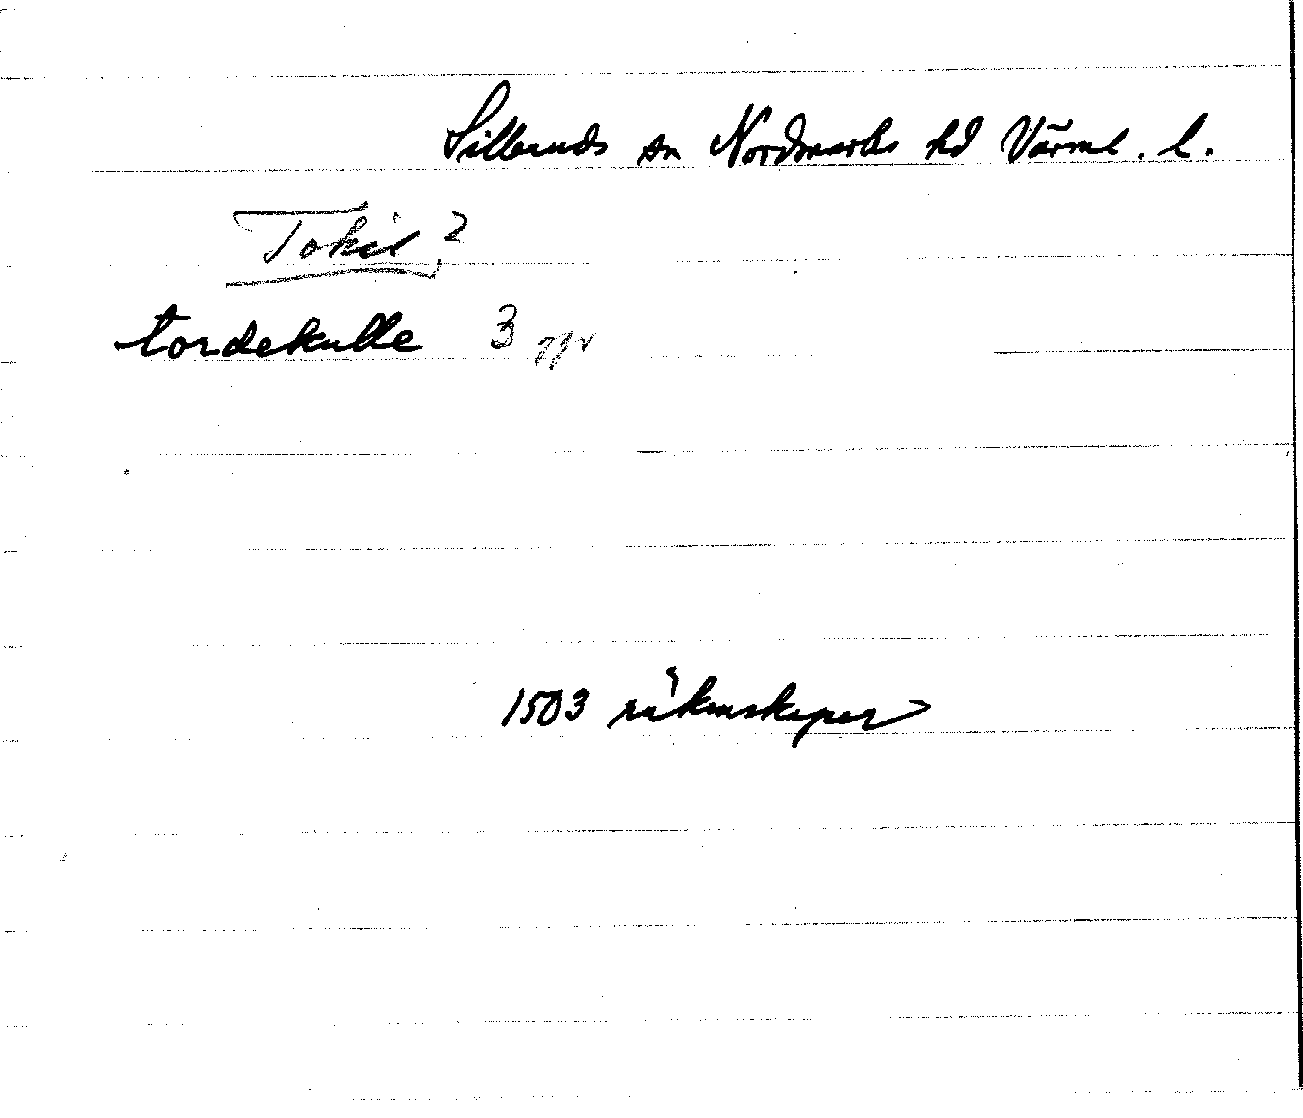 Silleruds sn Nordmarks hd Värml. l.
Tokil?
tordekulle 3
1503 räkenskaper